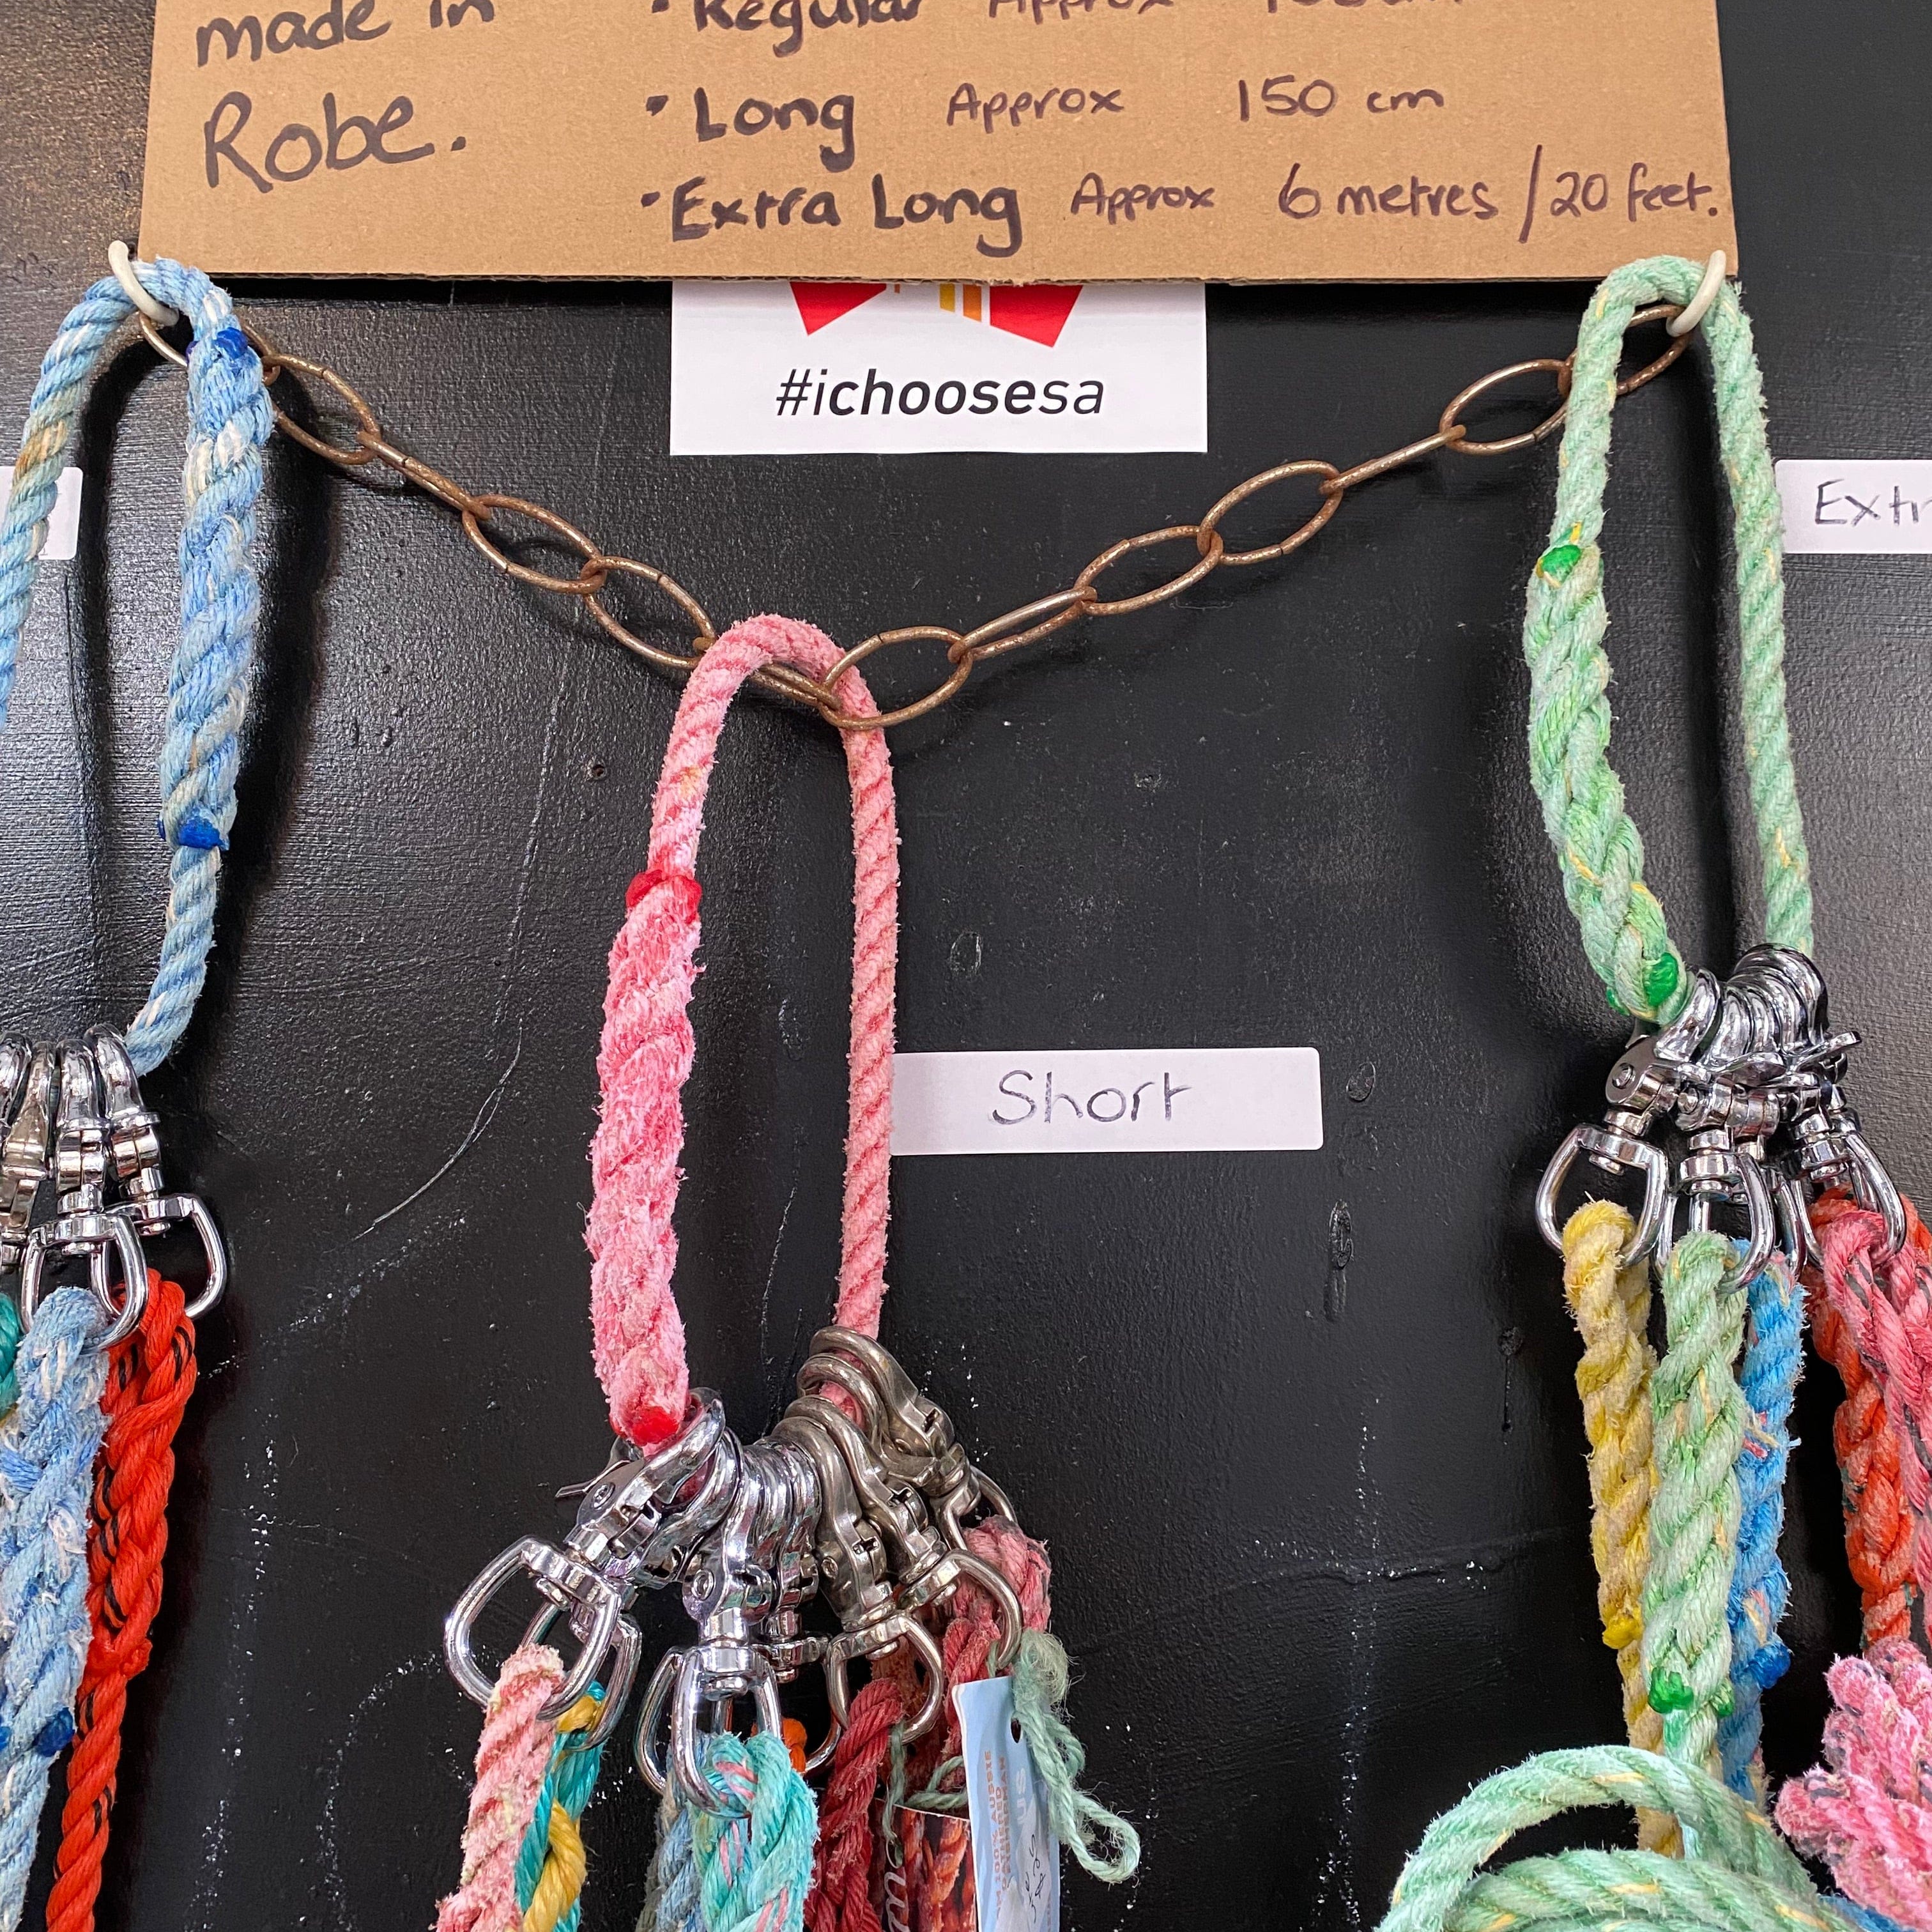 made in
Robe.
• Regular Approx
• Long Approx 150 cm
• Extra Long Approx 6 metres / 20 feet.
#ichoosesa
Short
100% AUSSIE